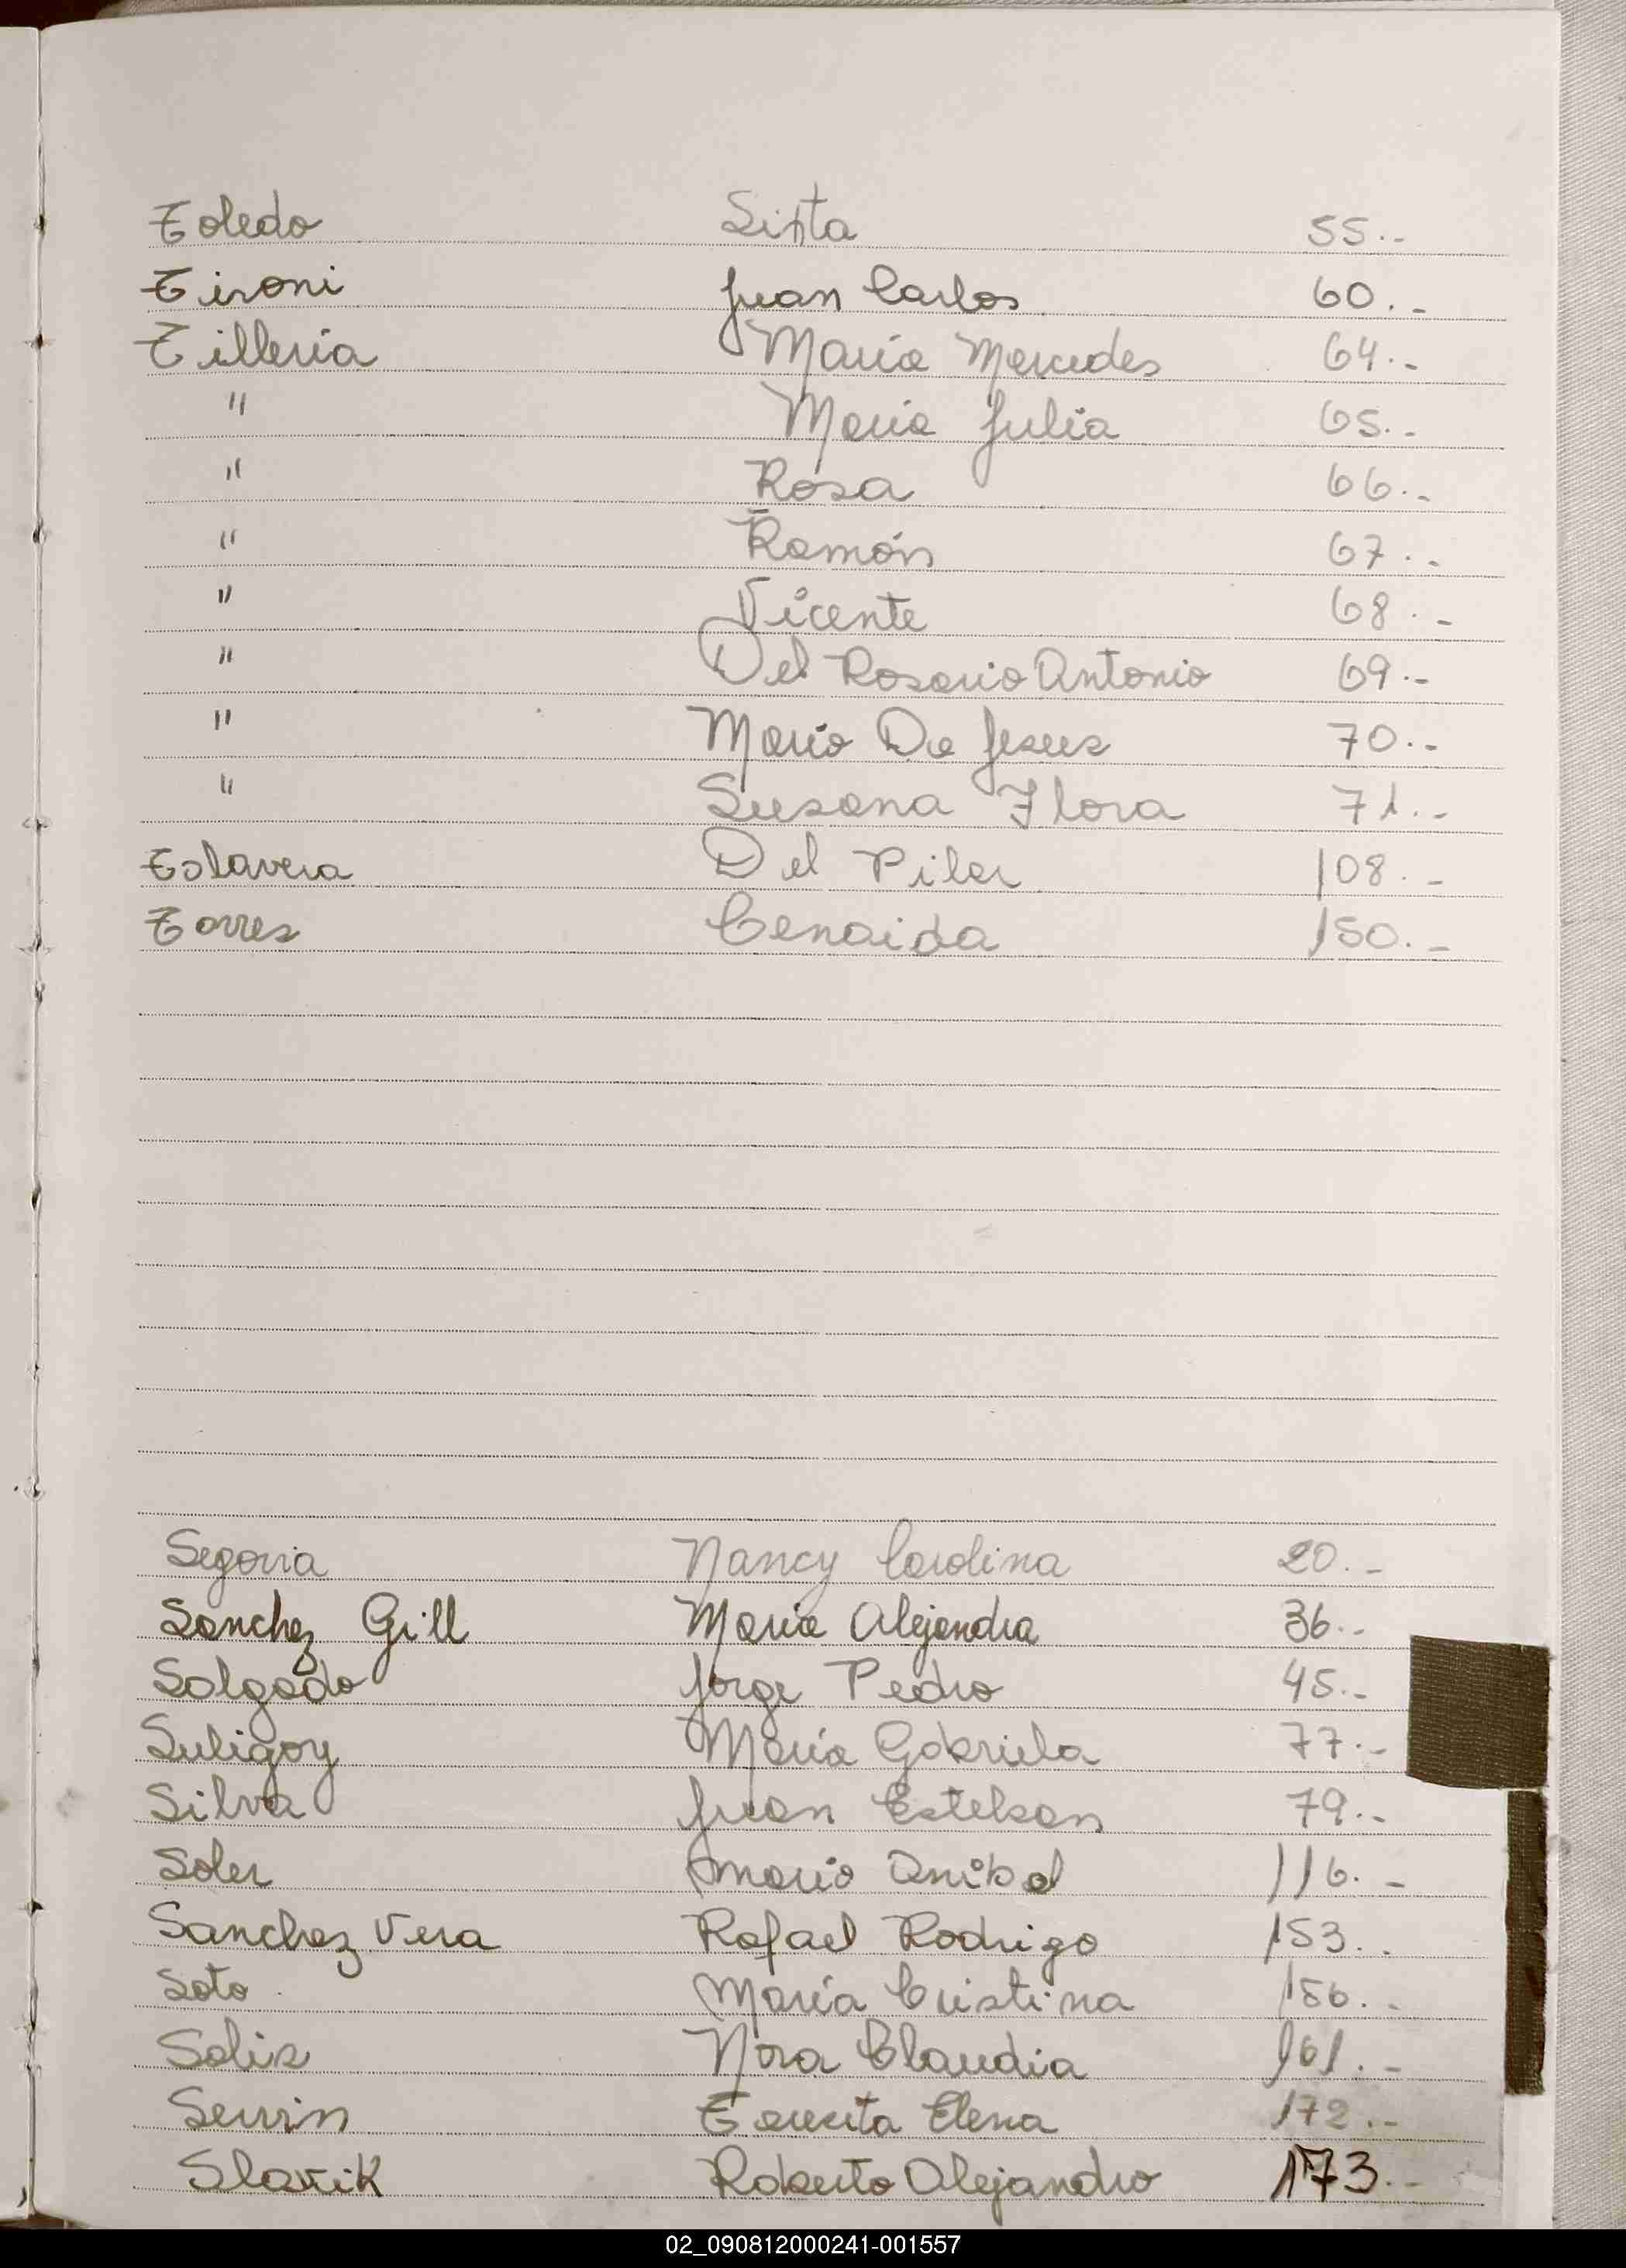 Toledo Sixta 55.-
Tironi Juan Carlos 60.-
Tilleria María Mercedes 64.-
" María Julia 65.-
" Rosa 66.-
" Ramón 67.-
" Vicente 68.-
" Del Rosario Antonio 69.-
" Mario De Jesus 70.-
" Susana Flora 71.-
Talavera Del Pilar 108.-
Torres Cenaida 150.-
Segovia Nancy Carolina 20.-
Sanchez Gill María Alejandra 36.-
Salgado Jorge Pedro 45.-
Suligoy María Gabriela 77.-
Silva Juan Esteban 79.-
Soler Mario Anibal 116.-
Sanchez Vera Rafael Rodrigo 153.-
Soto María Cristina 156.-
Solis Nora Claudia 161.-
Servin Elena 172.-
Slavik Roberto Alejandro 173.-
02_090812000241-001557